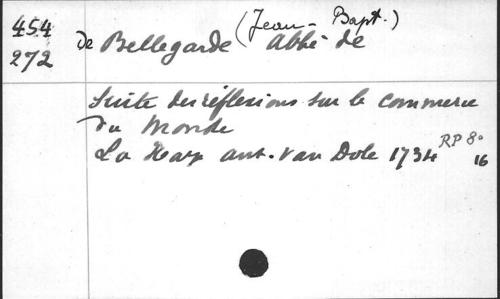 454
272
de Bellegarde (Jean-Bapt.) Abbé de
Suite des réflexions sur le commerce
du Monde
La Haye ant. van Dole 1734 RP 8°
16